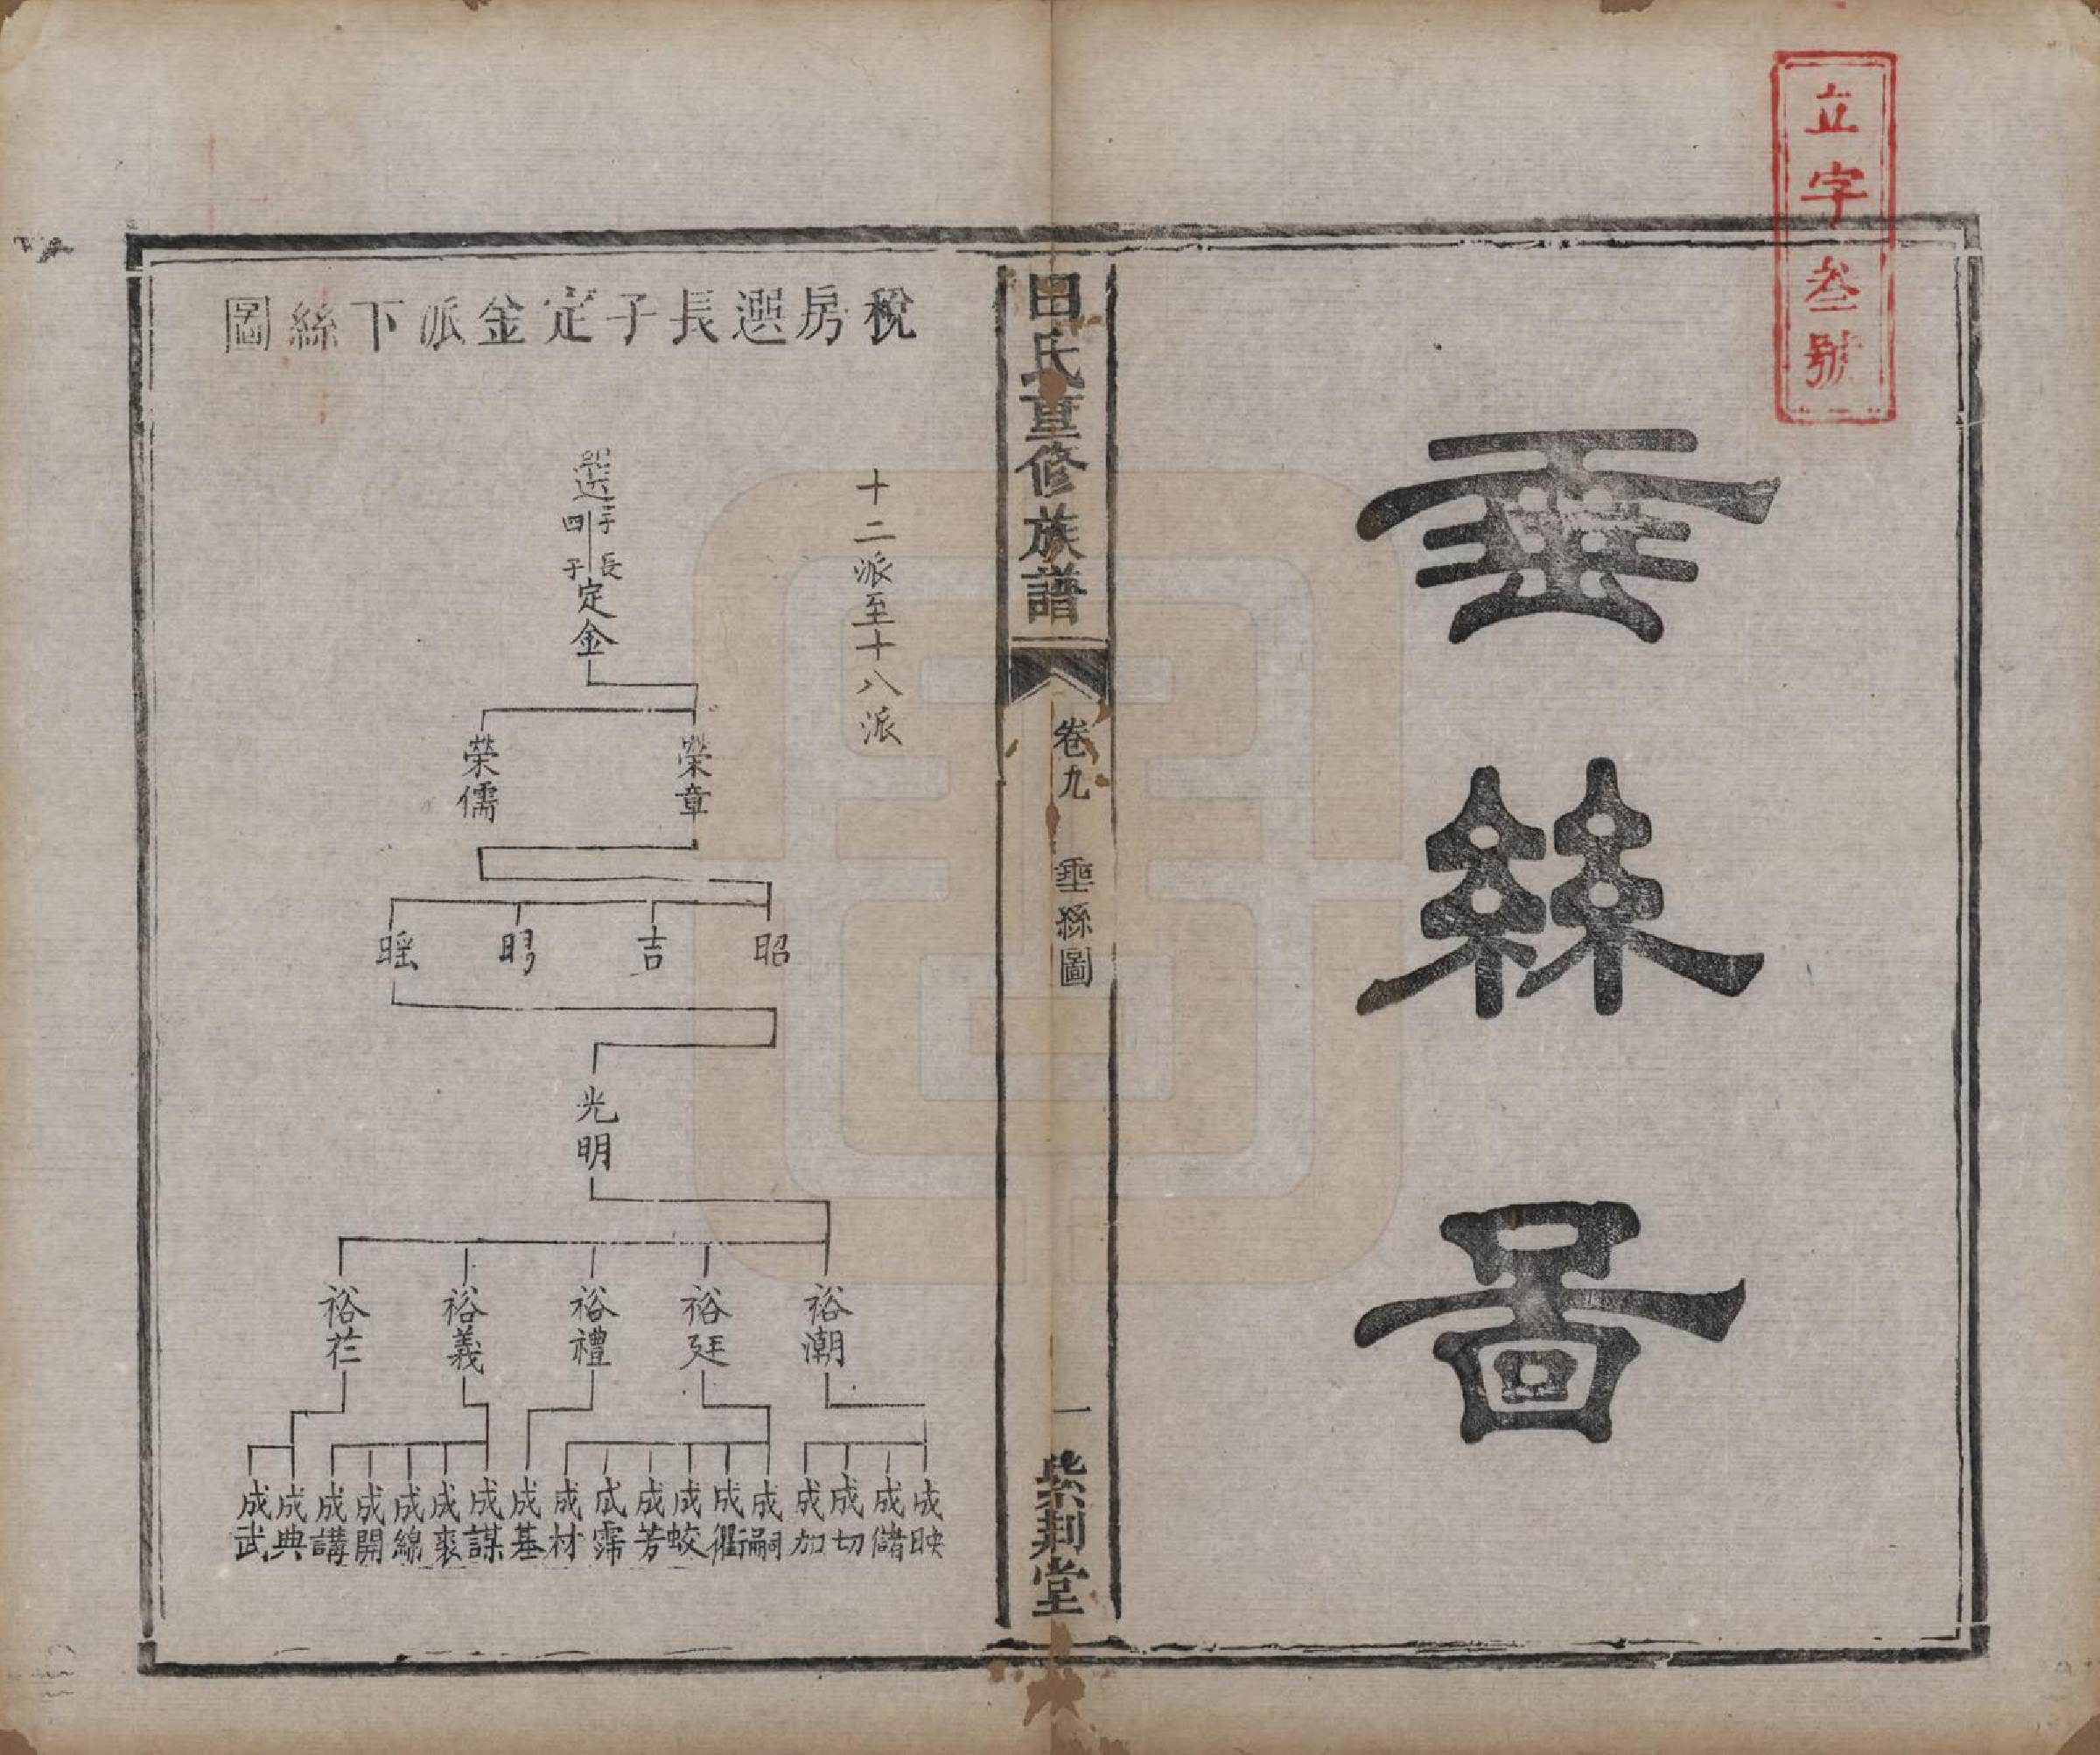 立字叁號
垂絲圖
田氏重修族譜
卷九
垂絲圖
一
紫荆堂
稅房選長子定金派下絲圖
十二派至十八派
選
四子
長子
定金
榮章
榮儒
昭
吉
光明
裕潮
裕廷
裕禮
裕義
成映
成儲
成切
成加
成嗣
成衢
成蛟
成芳
成霈
成材
成基
成謀
成裘
成綿
成開
成講
成典
成武